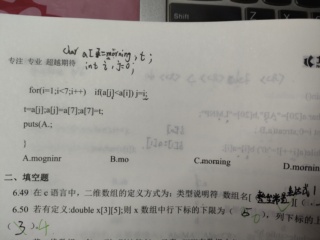 char a[]=morning, t;
专注 专业 超越期待 int i, j=0;
for(i=1;i<7;i++) if(a[j]<a[i]) j=i;
t=a[j];a[j]=a[7];a[7]=t;
puts(A.;
}
A.mogninr B.mo C.morning D.mornin
二、填空题
6.49 在 c 语言中，二维数组的定义方式为：类型说明符 数组名[
6.50 若有定义:double x[3][5];则 x 数组中行下标的下限为( 0 ), 列下标的上
(3 ) 4